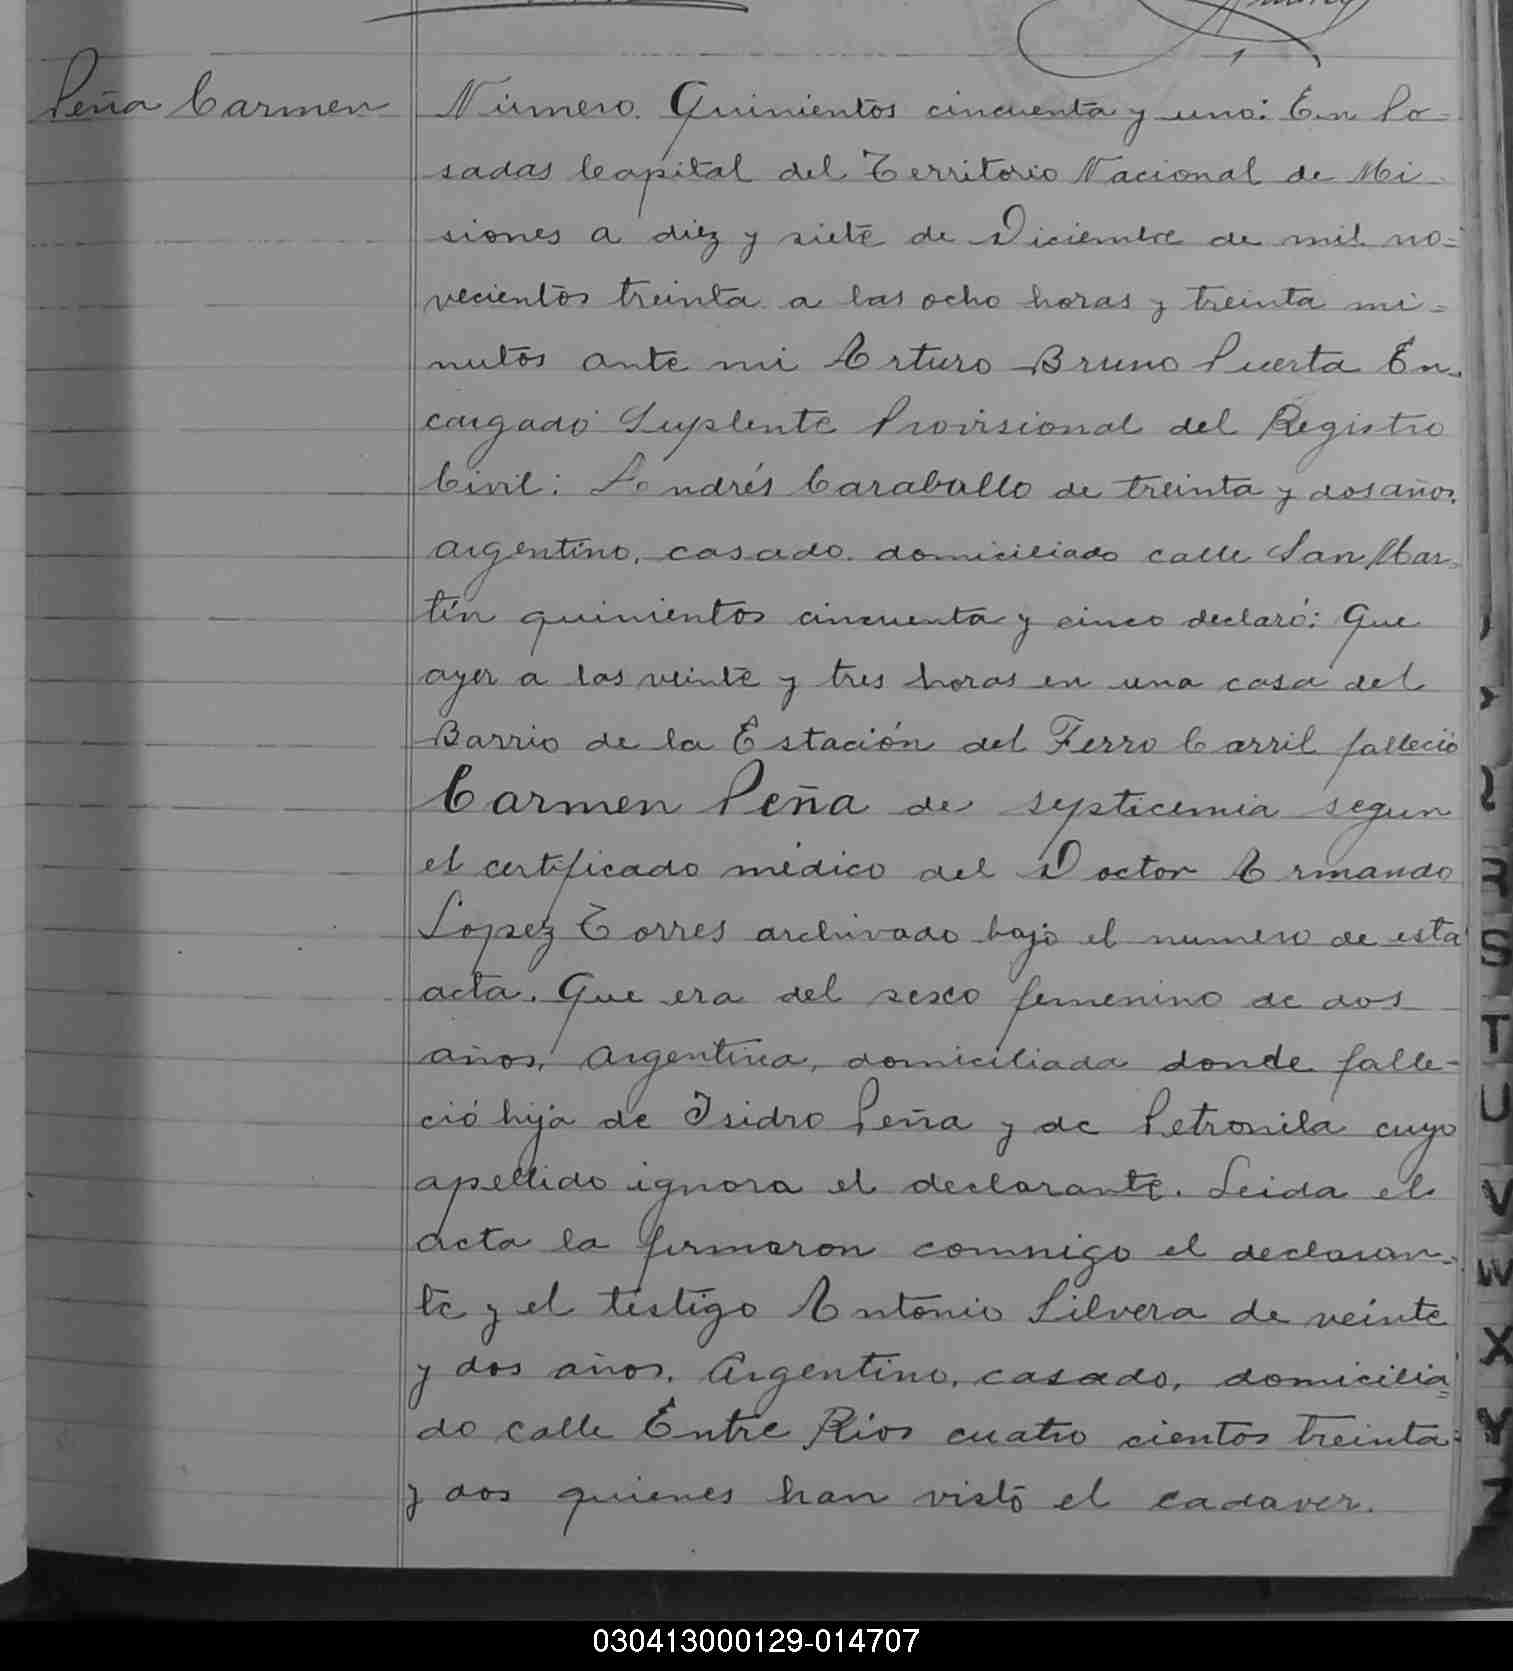 Peña Carmen
Número. Quinientos cincuenta y uno: En Po=
sadas Capital del Territorio Nacional de Mi
siones a diez y siete de Diciembre de mil no=
vecientos treinta a las ocho horas y treinta mi=
nutos ante mi Arturo Bruno Puerta En-
cargado Suplente Provisional del Registro
Civil: Andrés Caraballo de treinta y dos años.
argentino, casado domiciliado calle San Mar-
tín quinientos cincuenta y cinco declaró: Que
ayer a las veinte y tres horas en una casa del
Barrio de la Estación del Ferro Carril falleció
Carmen Peña de septicemia segun
el certificado médico del Doctor Armando
Lopez Torres archivado bajo el numero de esta
acta. Que era del sexo femenino de dos
años, argentina, domiciliada donde falle-
ció hija de Isidro Peña y de Petronila cuyo
apellido ignora el declarante. Leida el
acta la firmaron comnigo el declaran-
te y el testigo Antonio Silvera de veinte
y dos años, Argentino, casado, domicilia=
do calle Entre Rios cuatro cientos treinta
y dos quienes han visto el cadaver.
R
S
T
U
V
W
X
Y
Z
030413000129-014707